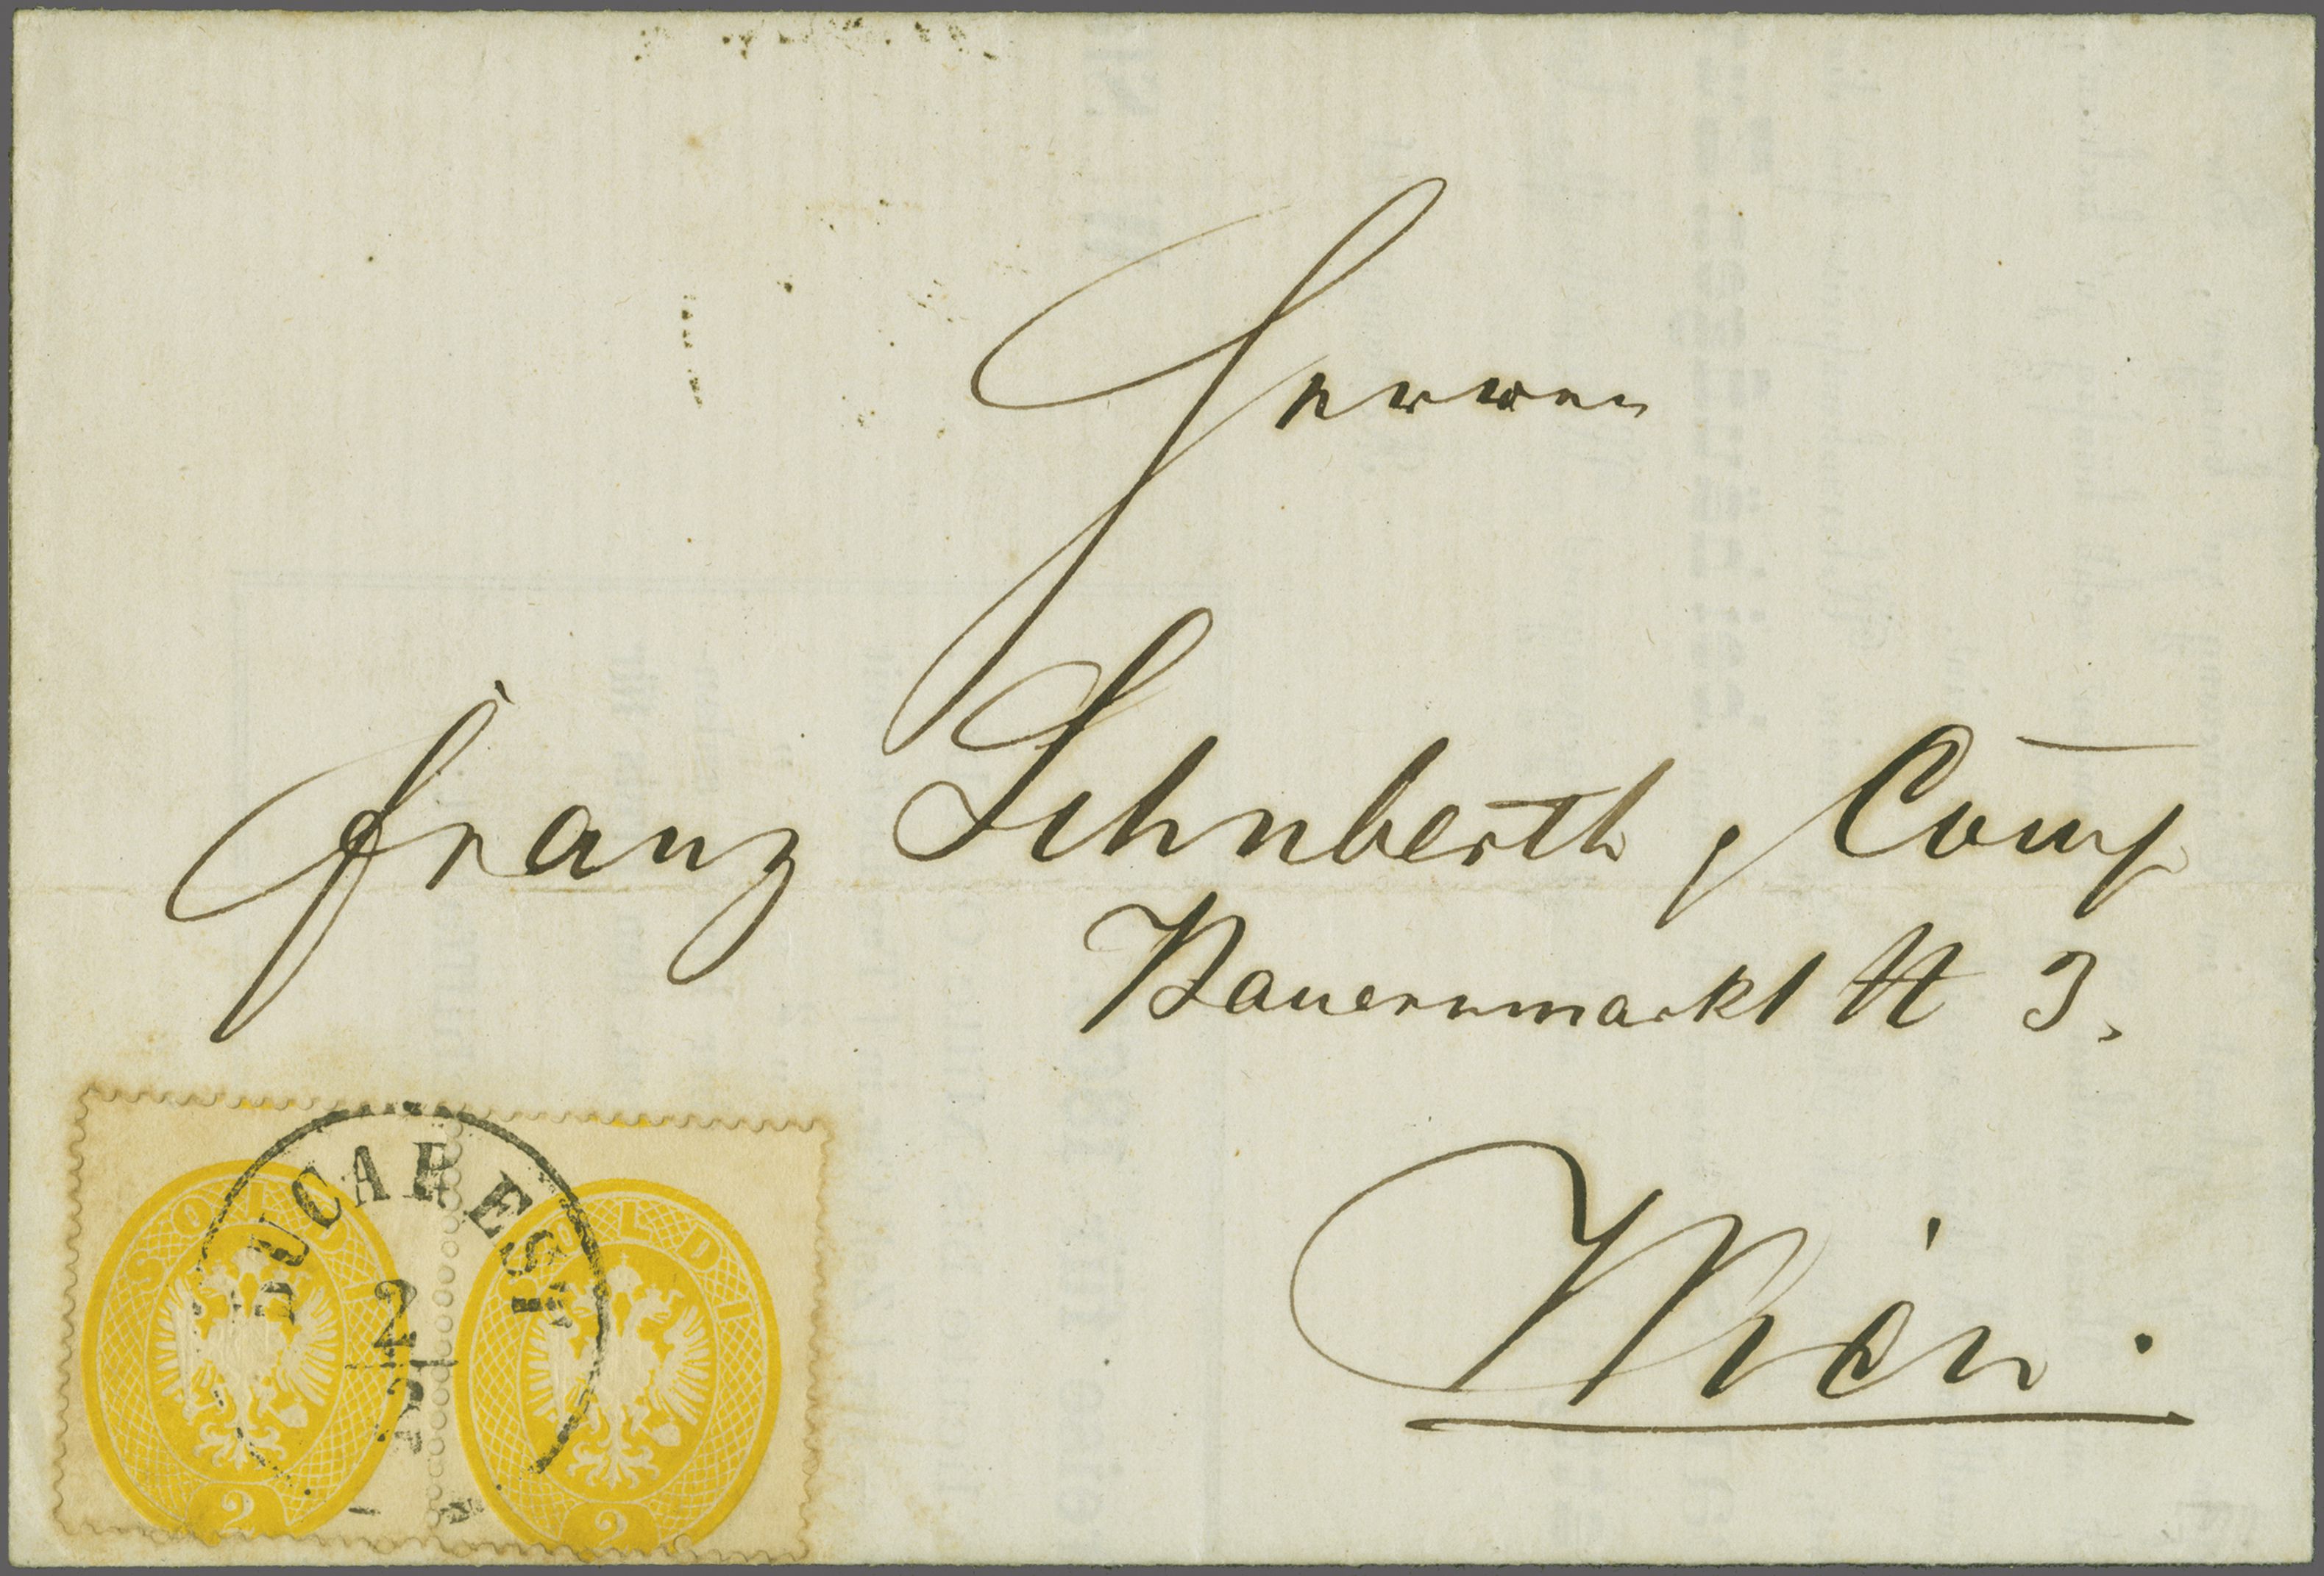 Herren
Franz Schuberth & Comp
Bauernmarkt N 3.
Wien.
SOLDI
SOLDI
BUCAREST
2
2
2
2